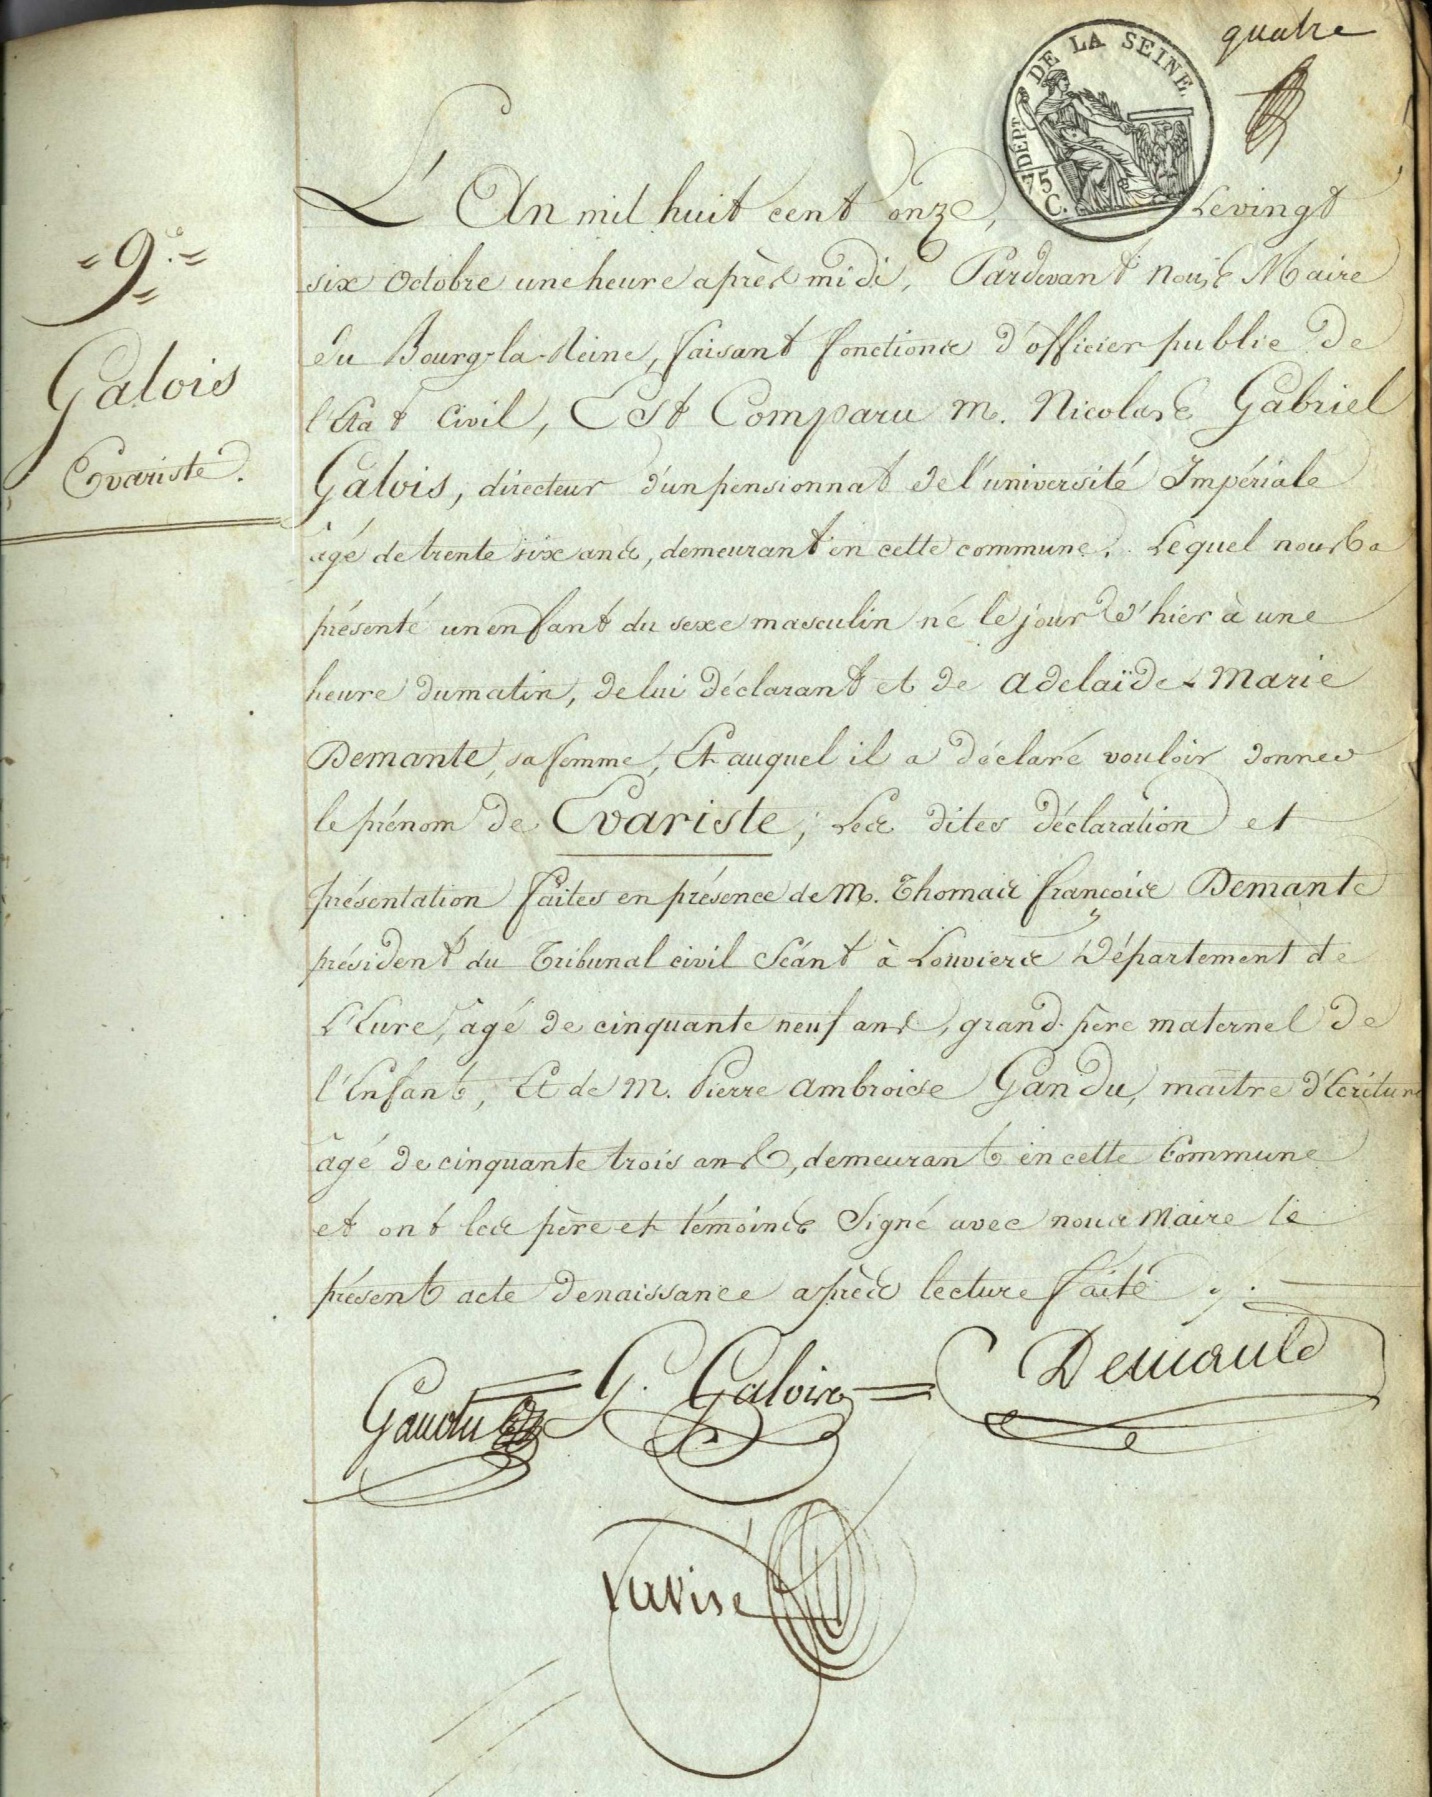 quatre
DEPT. DE LA SEINE.
75 C.
L'An mil huit cent onze, Le vingt
= 9.e =
six Octobre une heure après midi, Pardevant Nous Maire
du Bourg-la-Reine, faisant fonctions d'officier public de
Galois
l'Etat Civil, Est Comparu M. Nicolas Gabriel
Evariste.
Galois, directeur d'un pensionnat de l'université Impériale
âgé de trente six ans, demeurant en cette commune. Lequel nous a
présenté un enfant du sexe masculin né le jour d'hier à une
heure du matin, de lui déclarant et de Adelaïde Marie
Demante, sa femme, Et auquel il a déclaré vouloir donner
le prénom de Evariste; Les dites déclaration et
présentation faites en présence de M. Thomas François Demante
président du Tribunal civil Séant à Louviers Département de
L'Eure, âgé de cinquante neuf ans, grand-père maternel de
l'Enfant, Et de M. Pierre Ambroise Gandu, maître d'Ecriture
âgé de cinquante trois ans, demeurant en cette Commune
et ont les père et témoins Signé avec nous Maire le
présent acte de naissance après lecture faite.
Gandu = G. Galois = Demante